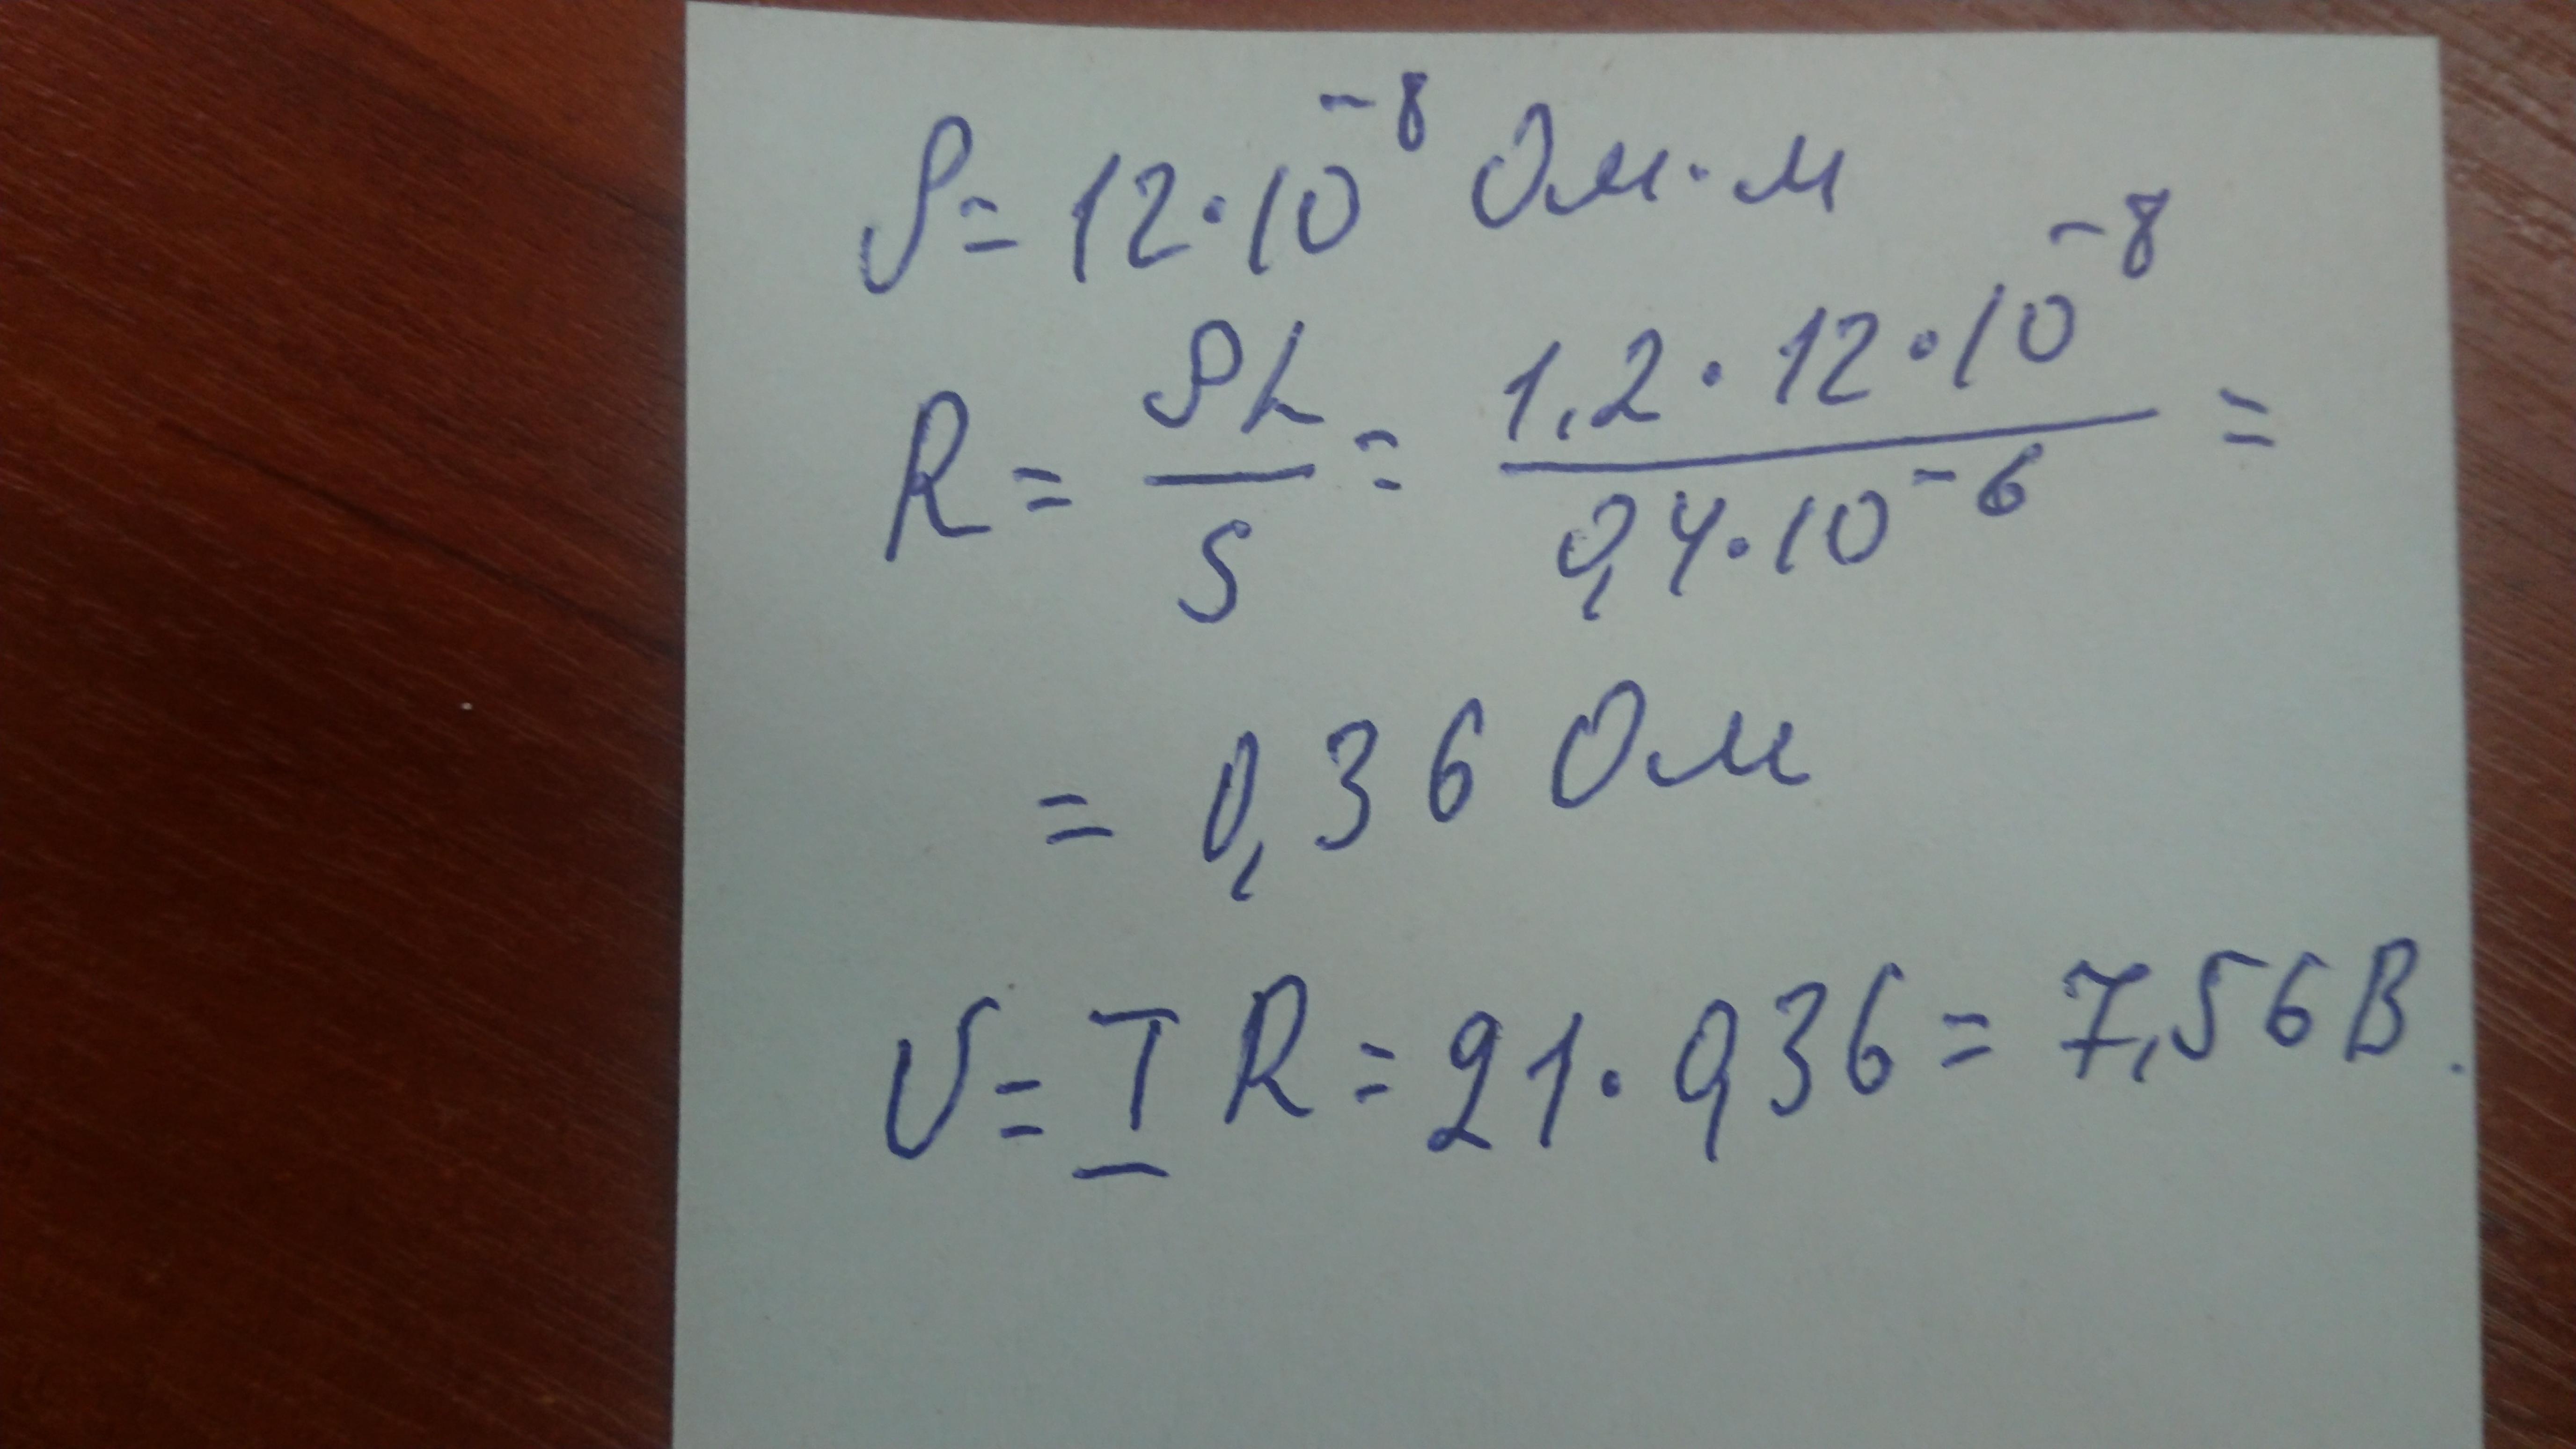 ρ = 12 · 10⁻⁸ Ом · м
R = ρL/S = 1,2 · 12 · 10⁻⁸ / 0,4 · 10⁻⁶ =
= 0,36 Ом
U = I R = 21 · 0,36 = 7,56 В.